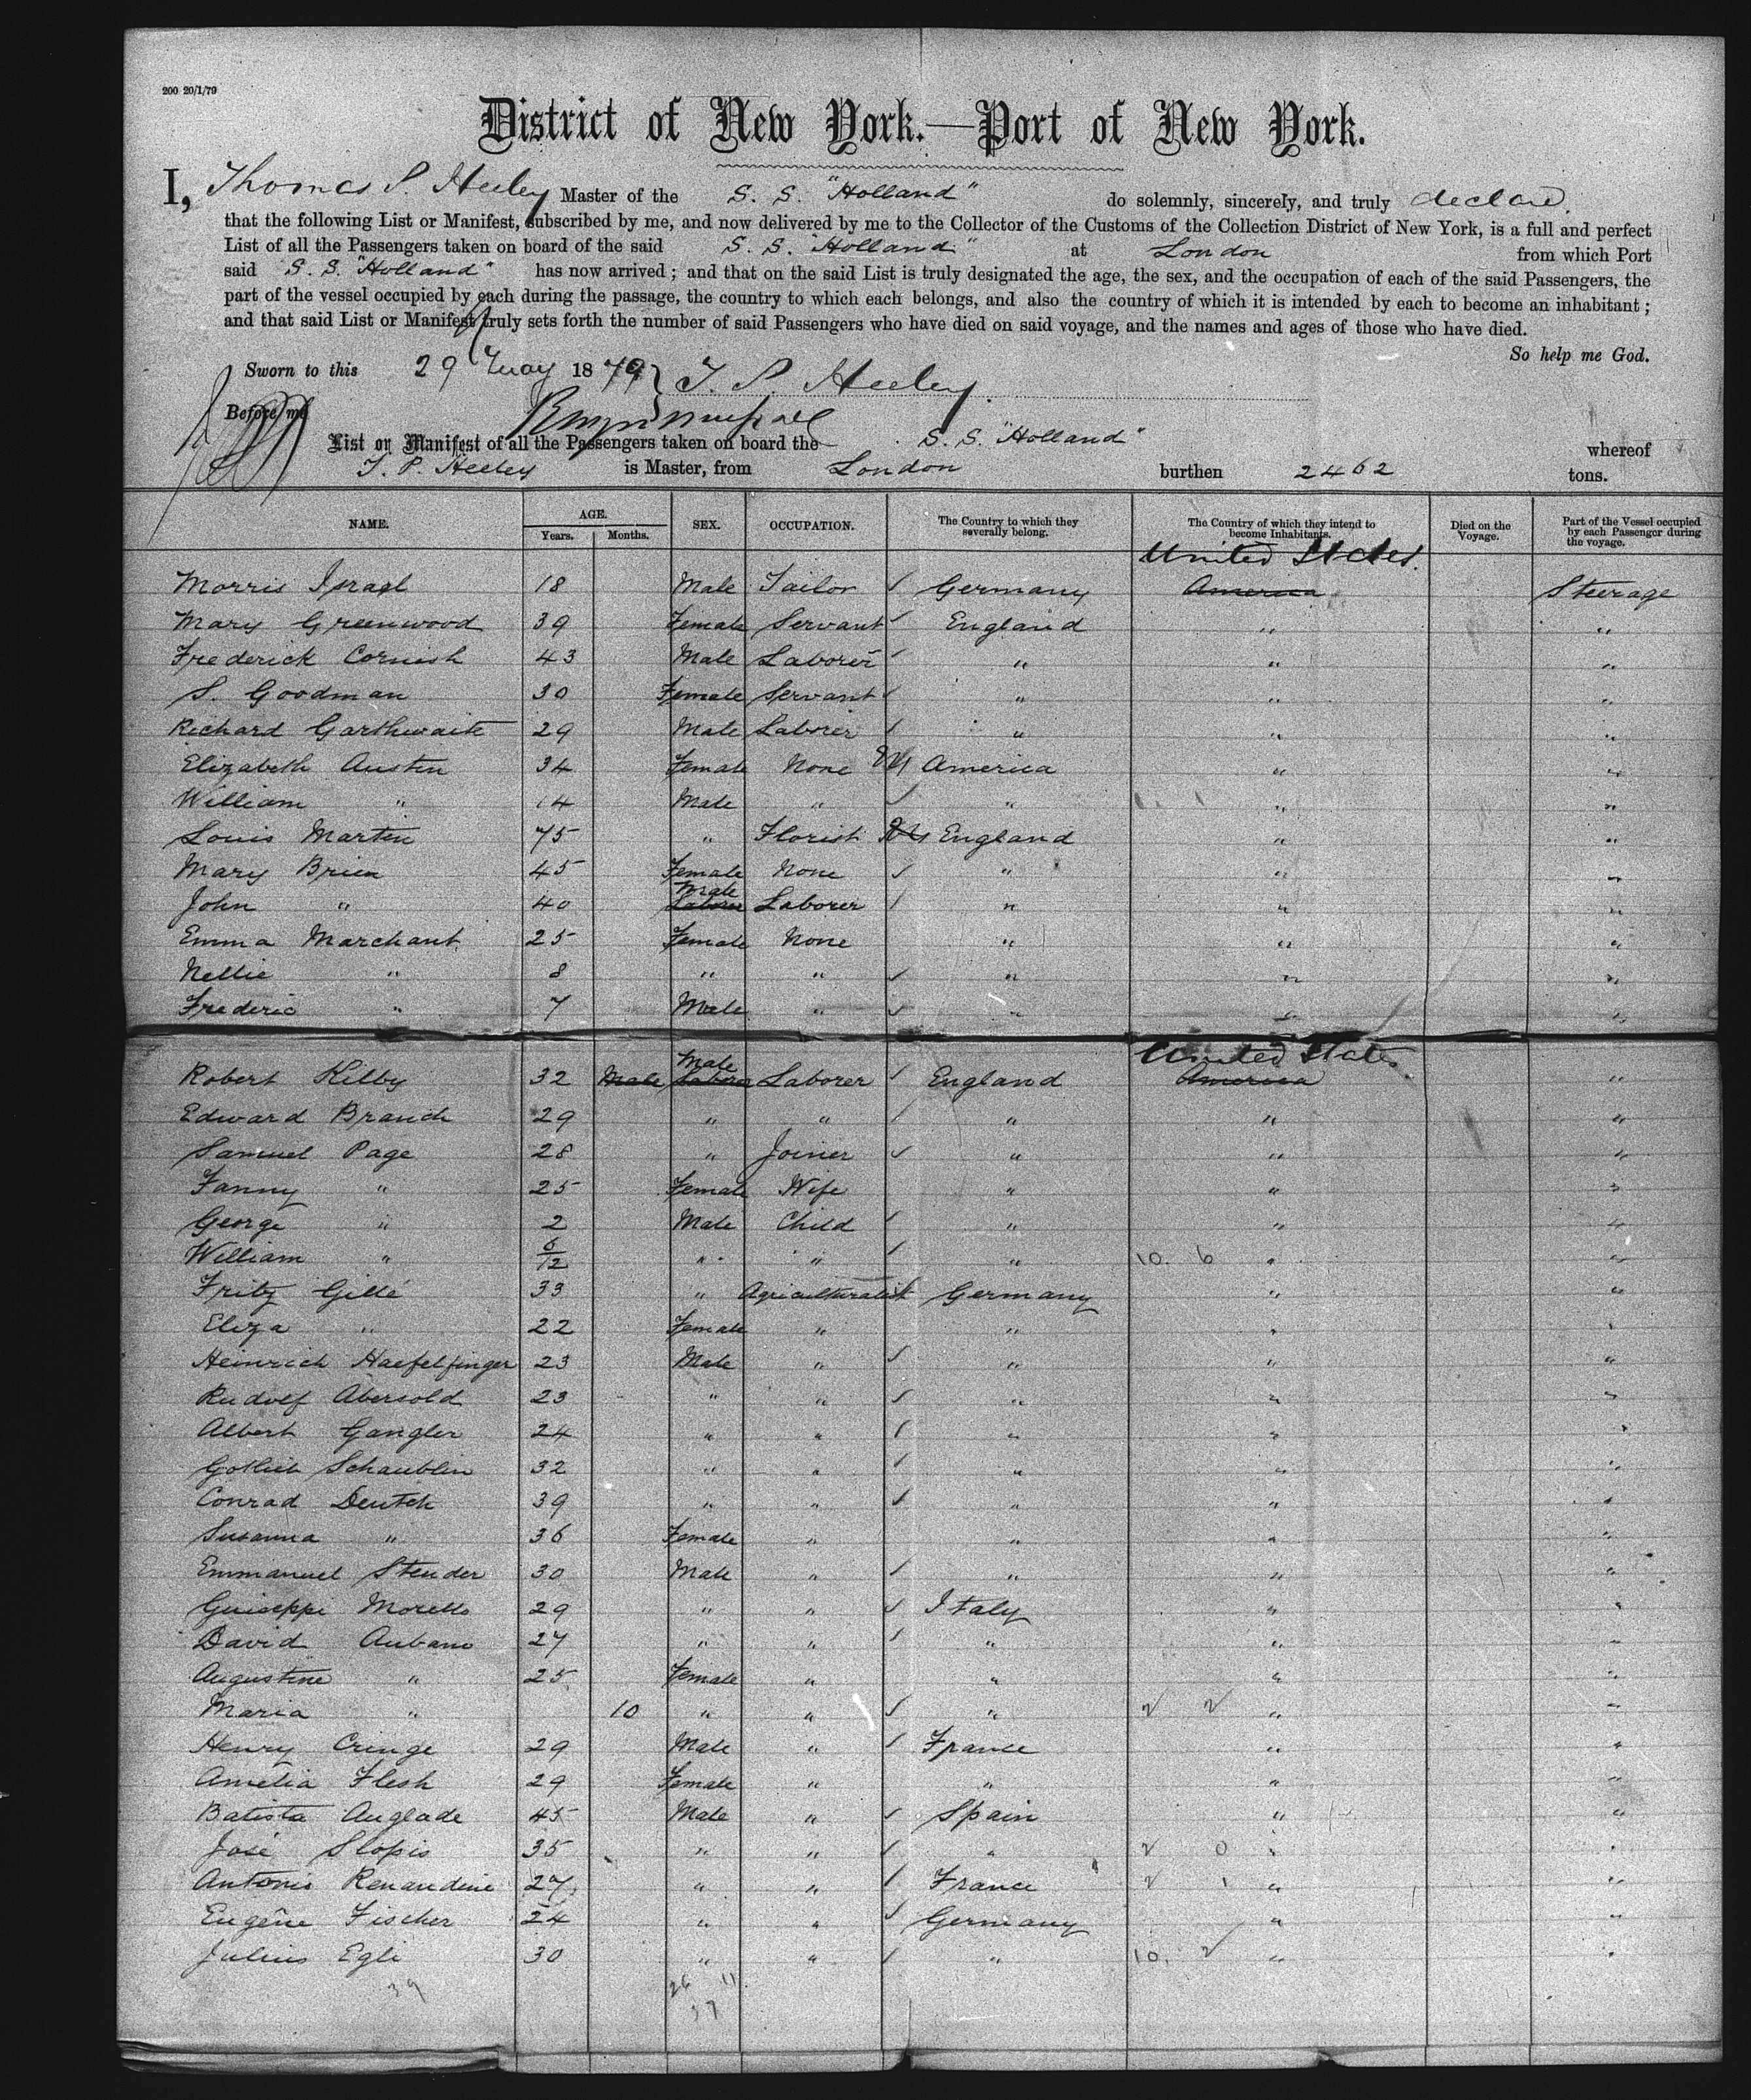 200 20/1/79
District of New York.—Port of New York.
I, Thomas P. Heeley Master of the S. S. "Holland" do solemnly, sincerely, and truly declare.
that the following List or Manifest, subscribed by me, and now delivered by me to the Collector of the Customs of the Collection District of New York, is a full and perfect
List of all the Passengers taken on board of the said S. S. "Holland" at London from which Port
said S. S. "Holland" has now arrived; and that on the said List is truly designated the age, the sex, and the occupation of each of the said Passengers, the
part of the vessel occupied by each during the passage, the country to which each belongs, and also the country of which it is intended by each to become an inhabitant;
and that said List or Manifest truly sets forth the number of said Passengers who have died on said voyage, and the names and ages of those who have died.
So help me God.
Sworn to this 29 May 1879 } T. P. Heeley
Before me
List or Manifest of all the Passengers taken on board the S. S. "Holland" whereof
T. P. Heeley is Master, from London burthen 2462 tons.
NAME. AGE. Years. Months. SEX. OCCUPATION. The Country to which they severally belong. The Country of which they intend to become Inhabitants. Died on the Voyage. Part of the Vessel occupied by each Passenger during the voyage.
United States.
Morris Israel 18 Male Tailor Germany America Steerage
Mary Greenwood 39 Female Servant England " "
Frederick Cornish 43 Male Laborer " " "
S. Goodman 30 Female Servant " " "
Richard Garthwaite 29 Male Laborer " " "
Elizabeth Austin 34 Female None America " "
William " 14 Male " " " "
Louis Martin 75 " Florist England " "
Mary Brien 45 Female None " " "
Male
John " 40 Laborer Laborer " " "
Emma Marchant 25 Female None " " "
Nellie " 8 " " " " "
Frederic " 7 Male " " " "
Male United States
Robert Kelby 32 Male Laborer Laborer England America "
Edward Branch 29 " " " " "
Samuel Page 28 " Joiner " " "
Fanny " 25 Female Wife " " "
George " 2 Male Child " " "
William " 6/12 " " " 10. 6 " "
Fritz Gillé 33 " Agriculturalist Germany " "
Eliza " 22 Female " " " "
Heinrich Haefelfinger 23 Male " " " "
Rudolf Abersold 23 " " " " "
Albert Gangler 24 " " " " "
Gotlieb Schaublin 32 " " " " "
Conrad Deutch 39 " " " " "
Susanna " 36 Female " " " "
Emmanuel Steuder 30 Male " " " "
Guiseppe Morello 29 " " Italy " "
David Aubano 27 " " " " "
Augustine " 25 Female " " " "
Maria " 10 " " " " "
Henry Cringe 29 Male " France " "
Amelia Flesh 29 Female " " " "
Batista Anglade 45 Male " Spain " "
José Slopis 35 " " " 2 0 " "
Antonio Renaudine 27 " " France " "
Eugêne Fischer 24 " " Germany " "
Julius Egli 30 " " " 10. 2 " "
39 26 11
37